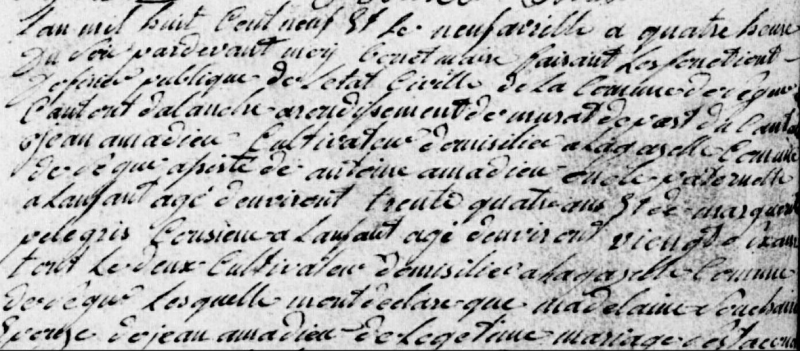 L'an mil huit Cent neuf Et Le neuf avrille a quatre heure
Du soir pardevant moy Benet maire faisant Les fonctiont
D'oficié publique de L'etat Civille de La Commune de vèque
Cantont dalanche arondisement de murat de part du Cantal
jean amadieu Cultivateur domisilié a Lagaselle Commune
de vèque apisté de antoine amadieu oncle paternelle
a Lanfant agé d'environt trente quatre ans Et de marguerite
pelegris Cousiene a Lanfant agé d'environt vient dix ans
tout Le deux Cultivateur domisilié a Lagaselle Commune
de vèque Lesquelle mont declare que madelaine
Epouse de jean amadieu de Legetime mariage est acouché